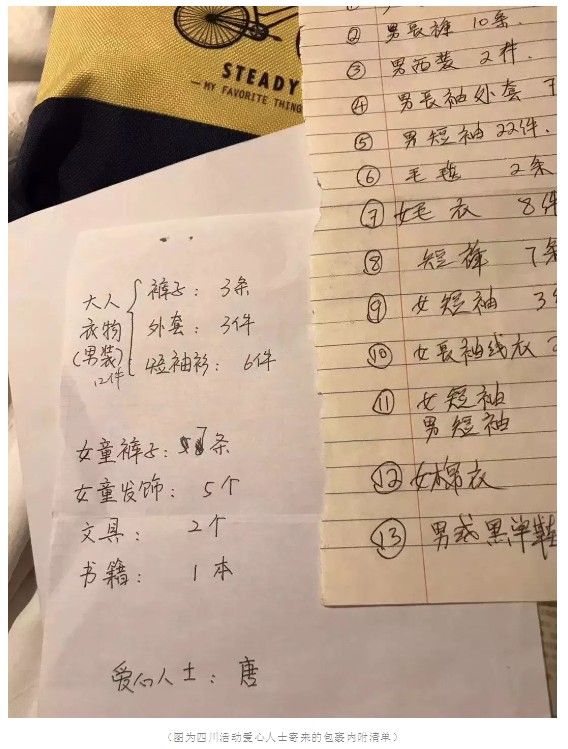 STEADY
— MY FAVORITE THING
② 男長裤 10条.
③ 男西装 2件.
④ 男長袖外套 7
⑤ 男短袖 22件.
⑥ 毛毯 2条
⑦ 女毛衣 8件
⑧ 短裤 7条
⑨ 女短袖 3件
⑩ 女長袖线衣 2
⑪ 女短袖
男短袖
⑫ 女棉衣
⑬ 男式黑单鞋
大人衣物(男装)12件
裤子: 3条
外套: 3件
短袖衫: 6件
女童裤子: 7条
女童发饰: 5个
文具: 2个
书籍: 1本
爱心人士: 唐
(图为四川活动爱心人士寄来的包裹内附清单)